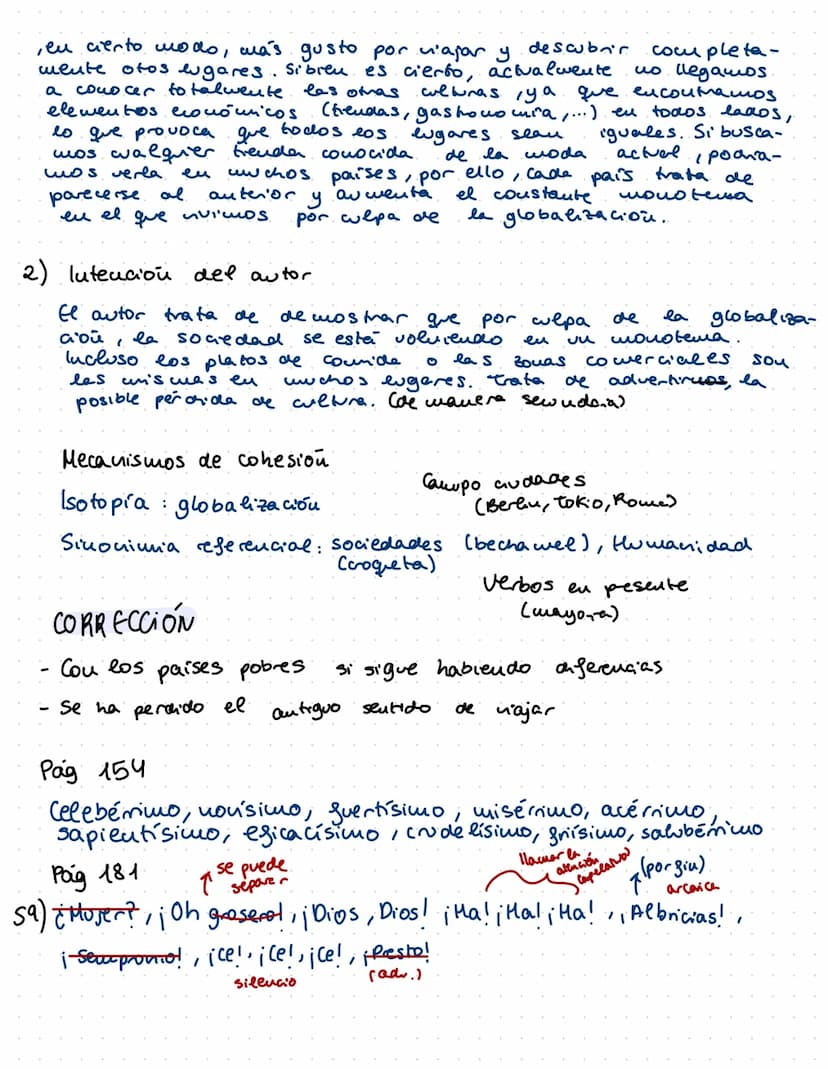 , en cierto modo, más gusto por viajar y descubrir completa-
mente otos lugares. Si bien es cierto, actualmente no llegamos
a conocer totalmente las otras culturas, ya que encontramos
elementos económicos (tiendas, gastronomía,...) en todos lados,
lo que provoca que todos los lugares sean iguales. Si busca-
mos cualquier tienda conocida de la moda actual, podría-
mos verla en muchos países, por ello, cada país trata de
parecerse al anterior y aumenta el constante monotema
en el que vivimos por culpa de la globalización.
2) Intención del autor
El autor trata de demostrar que por culpa de la globaliza-
ción, la sociedad se está volviendo en un monotema.
Incluso los platos de comida o las zonas comerciales son
las mismas en muchos lugares. Trata de advertirnos, la
posible pérdida de cultura. (de manera secundaria)
Mecanismos de cohesión
Campo ciudades
(Berlin, Tokio, Roma)
Isotopía : globalización
Sinonimia referencial: sociedades (bechamel), Humanidad
(croqueta)
Verbos en presente
(mayoría)
CORRECCIÓN
- Con los países pobres si sigue habiendo diferencias
- Se ha perdido el antiguo sentido de viajar
Pág 154
Celebérrimo, novísimo, fuertísimo, misérrimo, acérrimo,
sapientísimo, eficacísimo, crudelísimo, friísimo, salubérrimo
Pág 181
se puede
separar
llamar la
atención
(apelativo)
(por fin)
arcaica
5a) ¿Mujer?, ¡Oh grosero!, ¡Dios, Dios! ¡Ha! ¡Ha! ¡Ha!, ¡Albricias!,
¡Sempronio!, ¡ce!, ¡ce!, ¡ce!, ¡Presto!
silencio
(adv.)